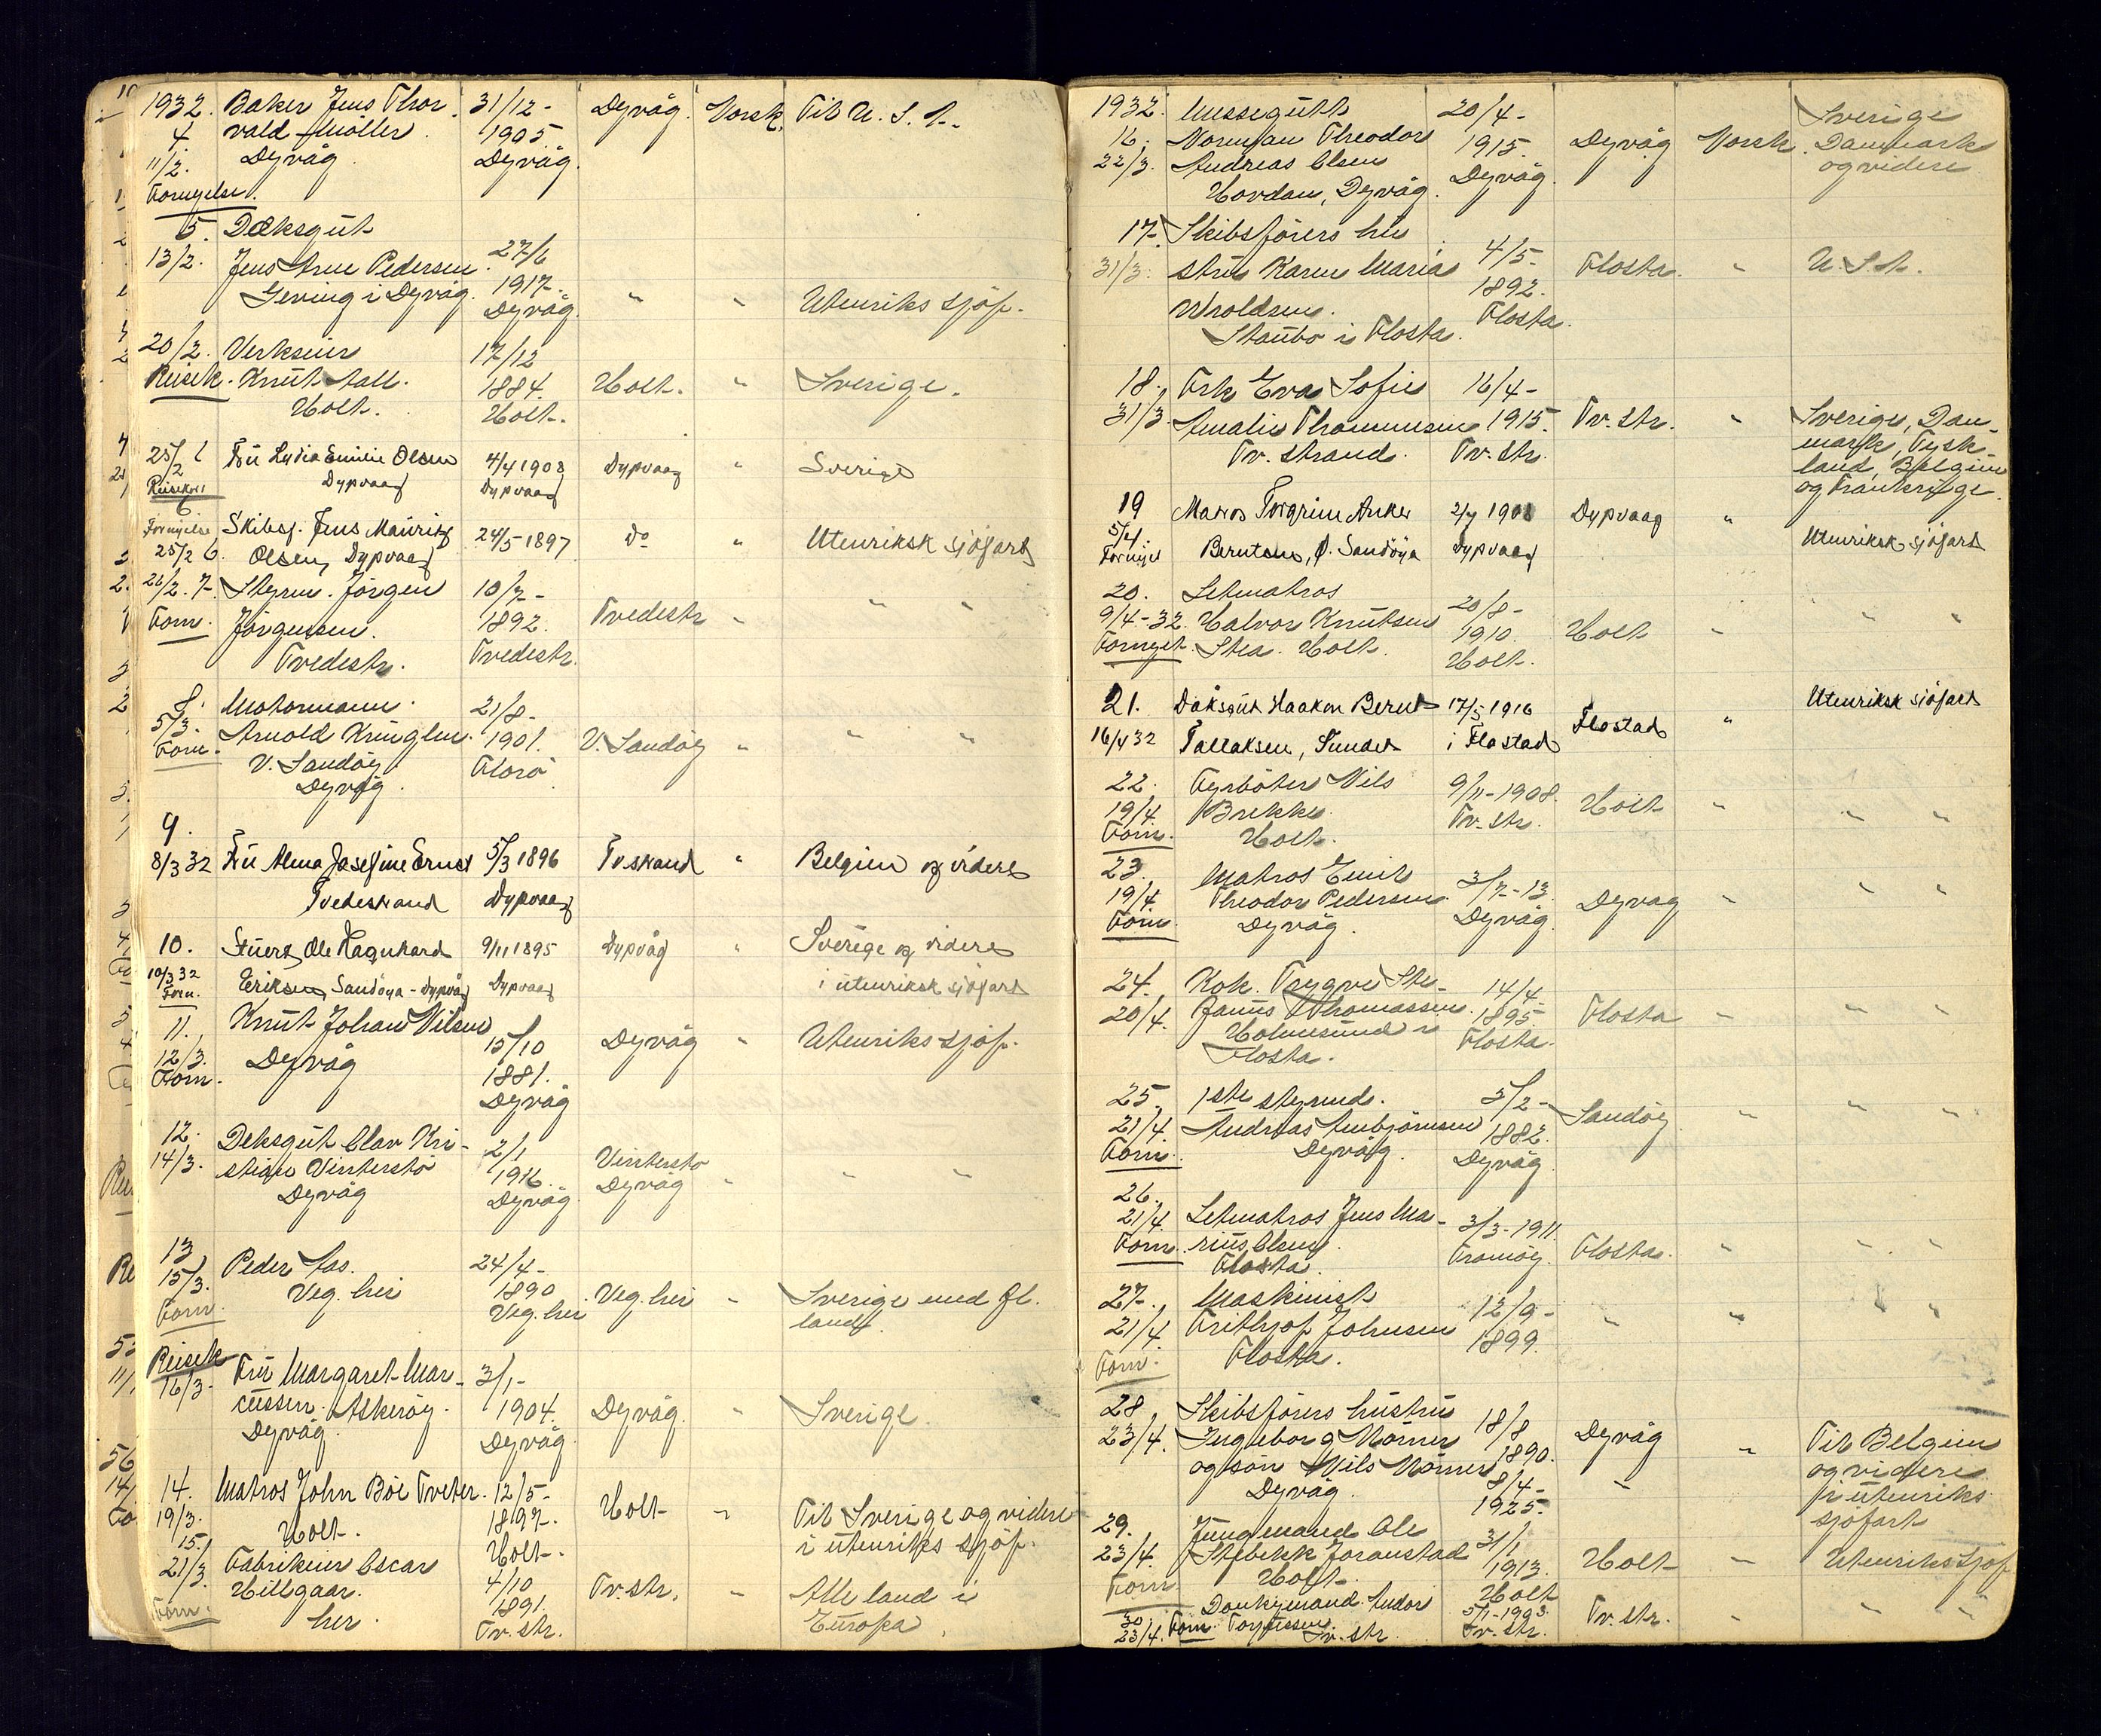 1932. Baker Jens Thor- 31/12- Dyvåg. Norsk. Til U. S. A.
4. vald Möller. 1905.
11/2. Dyvåg. Dyvåg.
Fornyelse.
5. Dæksgut
13/2. Jens Arne Pedersen. 27/6
Gjeving i Dyvåg. 1917. " " Utenriks sjöf.
Dyvåg.
20/2. Verkseier 17/12
Reisek. Knut Aall. 1884. Holt. " Sverige.
Holt. Holt.
25/2 Fru Lydia Emilie Olsen 4/4 1908 Dypvaag " Sverige
Reisekort Dypvaag Dypvaag
Fornyelse Skibsf. Jens Mauritz 24/5 1897 do " Utenriksk sjöfart
25/2 6. Olsen, Dypvaag
26/2. 7. Styrm. Jörgen 10/7- Tvedestr "
Forn. Jörgensen. 1892. " "
Tvedestr. Tvedestr.
8. Motormann. 21/8-
5/3. Arnold Kringlen. 1901. V. Sandöy " " "
Forn. V. Sandöy Florö
Dyvåg.
9.
8/3 32 Fru Alma Josefine Ernst 5/3 1896 Tvestrand " Belgien og videre
Tvedestrand Dypvaag
10. Stuert Ole Hagnhard 9/11 1895 Dypvåg " Sverige og videre
10/3 32 Eriksen, Sandöya - Dypvåg Dypvaag i utenriksk sjöfart
Forn.
11. Knut Johan Nilsen 15/10 Dyvåg " Utenriks sjöf.
12/3. Dyvåg 1881.
Forn. Dyvåg
12. Deksgut Olav Kri- 2/1 Vinterstø
14/3. stian Vinterstø 1916. Dyvåg " " "
Dyvåg Dyvåg
13 Peder Aas. 24/4-
15/3. Veg. hei 1890 Veg. hei " Sverige med fl.
Forn. Veg. hei land.
Reisek Fru Margaret Mar- 3/1-
16/3- cussen. Askeröy. 1904. Dyvåg. " Sverige.
Dyvåg. Dyvåg.
14. Matros John Böe Tveter. 12/5- Holt " Til Sverige og videre
19/3. Holt. 1897. i utenriks sjöf.
15. Holt.
21/3. Fabrikeier Oscar 4/10 Tv. str. " Alle land i
Forn. Hillgaar. 1891. Europa.
her. Tv. str.
1932. Messegutt 20/4- Sverige
16. Norman Theodor 1915. Dyvåg Norsk. Danmark
22/3. Andreas Olsen Dyvåg. og videre
Hovdan, Dyvåg.
17. Skibsförers hu
31/3. stru Karen Maria 4/5- Flosta. " U. S. A.
1892.
Staubo i Flosta. Flosta.
18. Frk Eva Sofie 16/4-
31/3 Amalie Thommesen 1915. Tv. str. " Sverige, Dan-
Tv. strand. Tv. str. mark, Tysk-
land, Belgien
og Frankrige.
19 Matros Torgrim Anker 2/7 1908 Dypvaag " Utenriksk sjöfart
5/4. Berntsen, Ø. Sandöya Dypvaag
Fornyet
20. Letmatros 20/8- " "
9/4-32. Halvor Knutsen 1910. Holt "
Fornyet. Stea. Holt. Holt.
21. Däksgut Haakon Bernt 17/5 1916 Flostad " Utenriksk sjöfart
16/4 32 Tallaksen, Sundet i Flostad
22. Fyrböter Nils 9/11-1908. Holt " " "
19/4. Brekke. Tv. str.
Forn. Holt.
23. Matros Emil 3/7-13. " "
19/4. Theodor Pedersen. Dyvåg. Dyvåg "
Forn. Dyvåg.
24. Kok. Trygve Ste- 14/4-
20/4. Thomassen. 1895- Flosta " " "
Holmesund i Flosta.
Flosta.
25. 1ste styrmd. 5/2- Sandöy " " "
21/4. Andreas Arnbjörnsen 1882.
Forn. Dyvåg. Dyvåg
26. Letmatros Jens Ma- 3/3-1911.
21/4. rius Olsen. Tromöy. Flosta. " " "
Forn. Flosta.
27. Maskinist 12/9- " " " "
21/4. Frithjof Johnsen 1899.
Forn. Flosta.
28. Skibsförers hustru 18/8 Dyvåg " Til Belgien
23/4. Ingeborg Mörner 1890. og videre
og sön Nils Mörner 8/4- " i utenriks
Dyvåg. 1925. sjöfart
29. Jungmand Ole 3/1
23/4. Stebekk Joranstad 1913. Holt " Utenriks sjöf
Forn. Holt. Holt
30. Donkymand Andor 5/1-1903. Tv. str. " " "
23/4. Forn. Torjussen. Tv. str Tv. str.